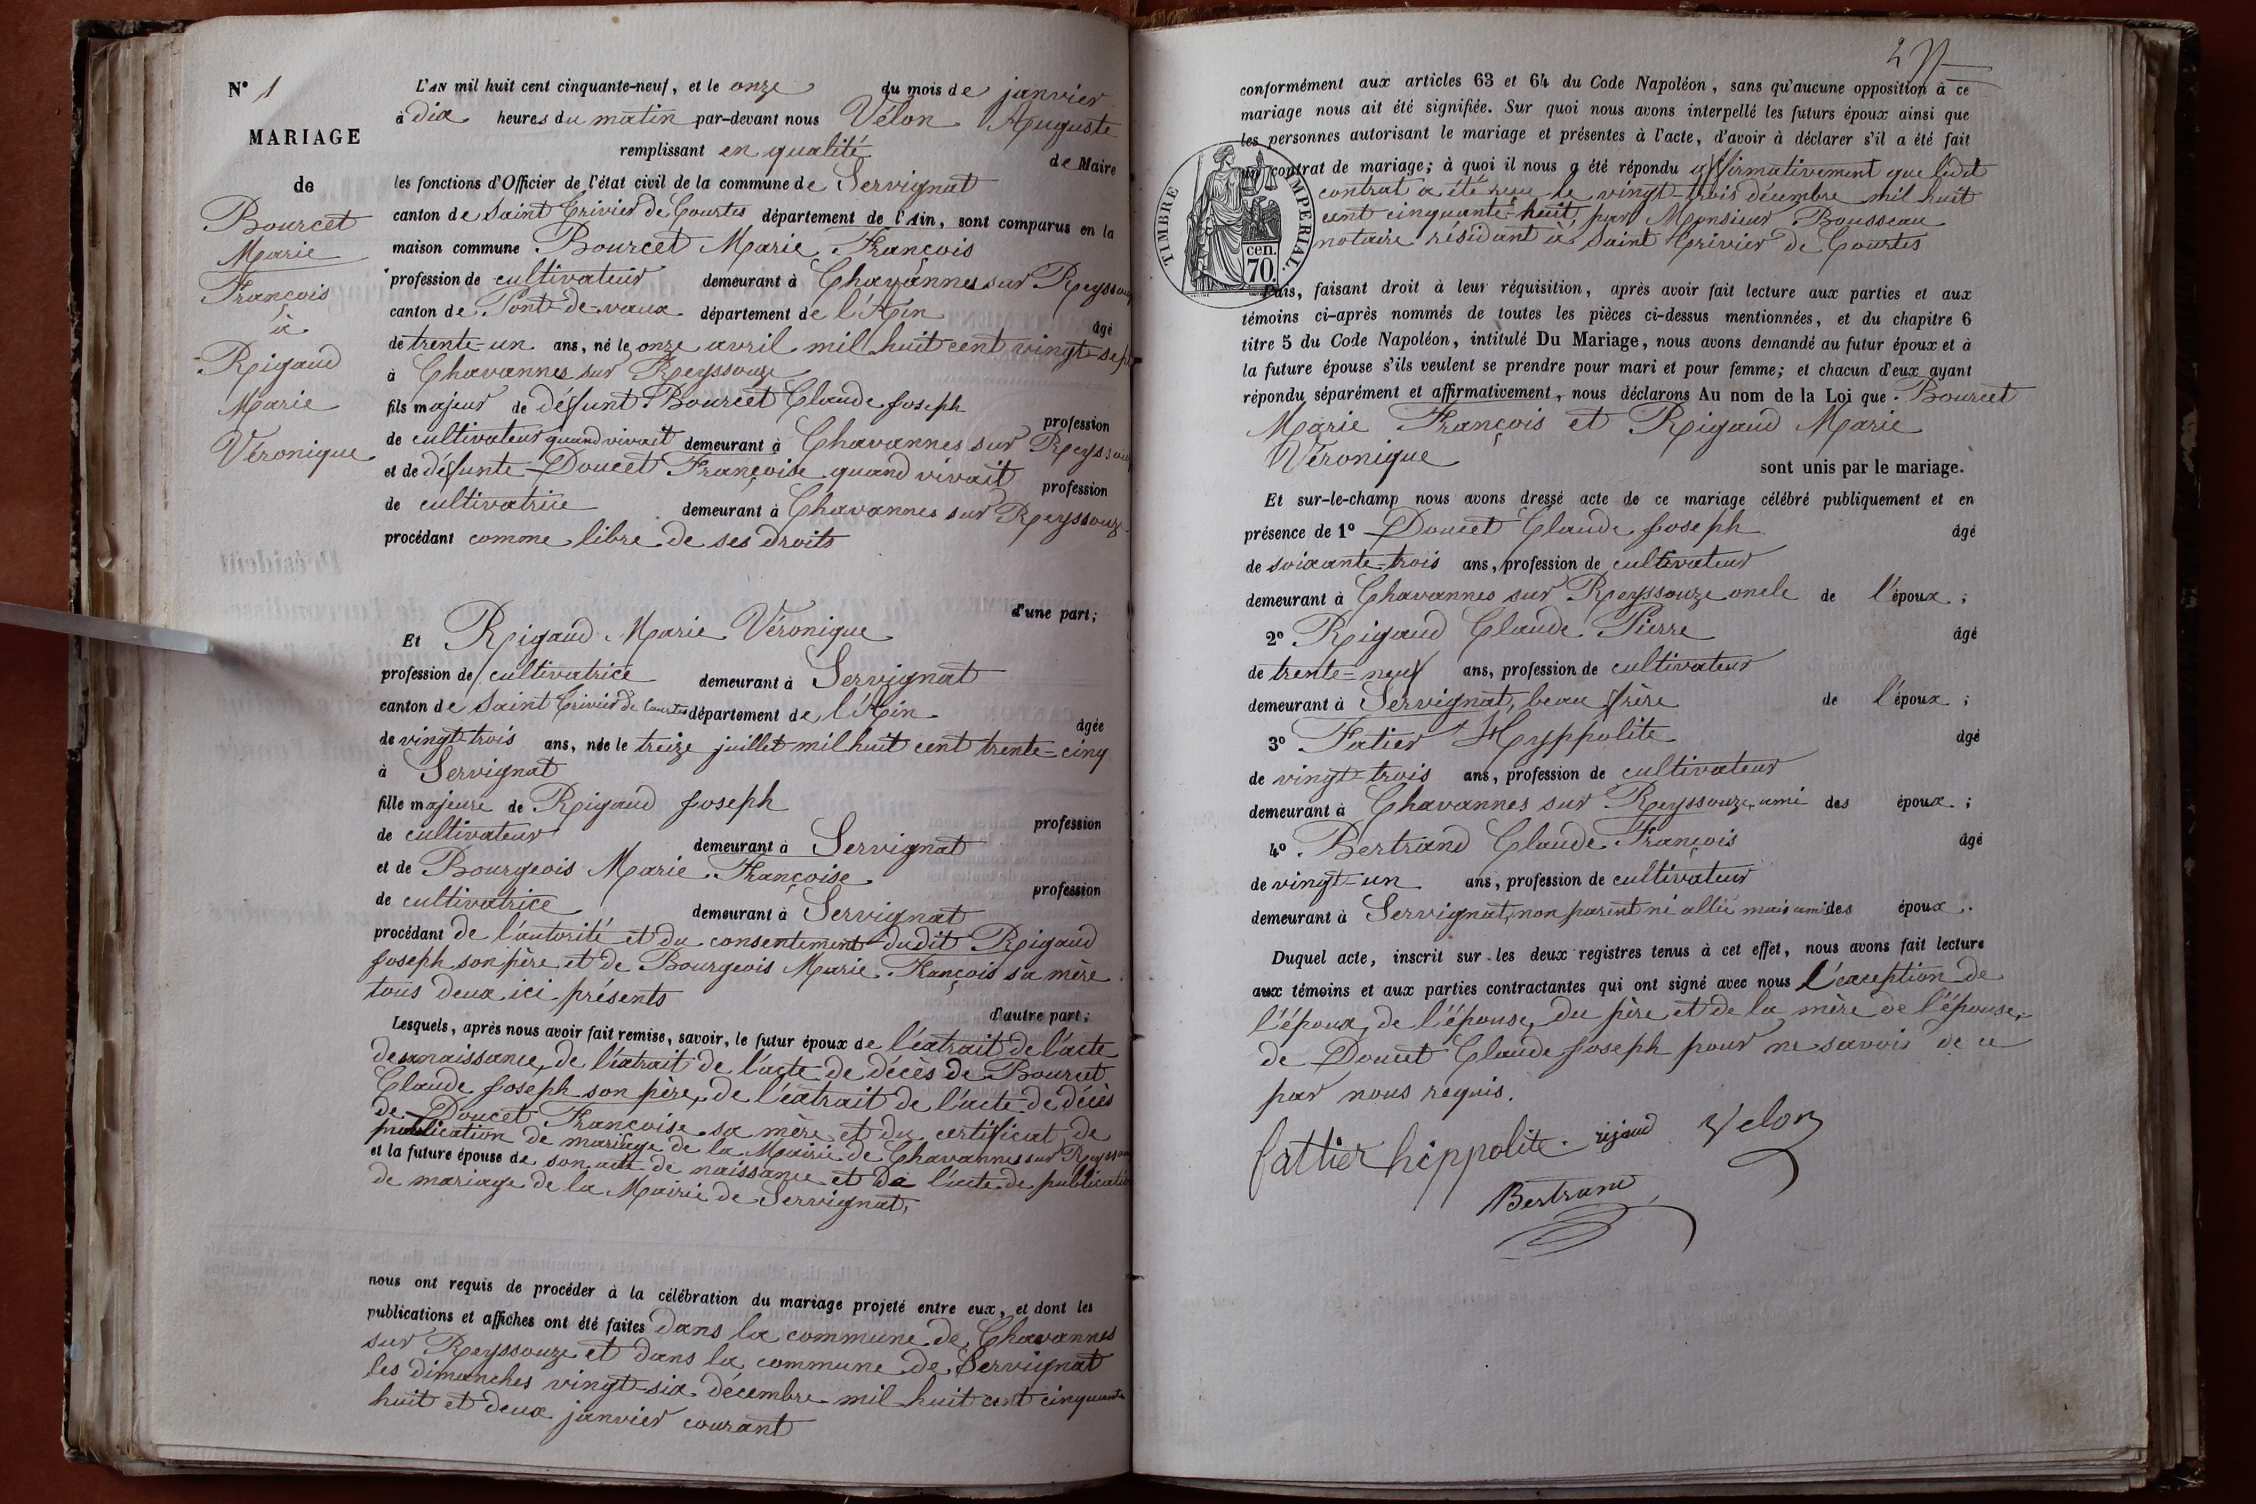 N° 1
MARIAGE
de
Bourcet
Marie
François
à
Rigaud
Marie
Véronique
L'AN mil huit cent cinquante-neuf, et le onze du mois de janvier
à dix heures du matin par-devant nous Vélon Auguste
remplissant en qualité de Maire
les fonctions d'Officier de l'état civil de la commune de Servignat
canton de Saint Trivier de Courtes département de l'Ain, sont comparus en la
maison commune Bourcet Marie François
profession de cultivateur demeurant à Chavannes sur Reyssouze
canton de Pont-de-vaux département de l'Ain âgé
de trente-un ans, né le onze avril mil huit cent vingt-sept
à Chavannes sur Reyssouze
fils majeur de défunt Bourcet Claude Joseph profession
de cultivateur quand vivait demeurant à Chavannes sur Reyssouze
et de défunte Doucet Françoise quand vivait profession
de cultivatrice demeurant à Chavannes sur Reyssouze
procédant comme libre de ses droits
d'une part;
Et Rigaud Marie Véronique
profession de cultivatrice demeurant à Servignat
canton de Saint Trivier de Courtes département de l'Ain âgée
de vingt-trois ans, née le treize juillet mil huit cent trente-cinq
à Servignat
fille majeure de Rigaud Joseph profession
de cultivateur demeurant à Servignat
et de Bourgeois Marie Françoise profession
de cultivatrice demeurant à Servignat
procédant de l'autorité et du consentement dudit Rigaud
Joseph son père et de Bourgeois Marie François sa mère
tous deux ici présents
d'autre part;
Lesquels, après nous avoir fait remise, savoir, le futur époux de l'extrait de l'acte
de sa naissance, de l'extrait de l'acte de décès de Bourcet
Claude Joseph son père, de l'extrait de l'acte de décès
de Doucet Françoise sa mère et du certificat de
publication de mariage de la Mairie de Chavannes sur Reyssouze
et la future épouse de son acte de naissance et de l'acte de publication
de mariage de la Mairie de Servignat,
nous ont requis de procéder à la célébration du mariage projeté entre eux, et dont les
publications et affiches ont été faites dans la commune de Chavannes
sur Reyssouze et dans la commune de Servignat
les dimanches vingt-six décembre mil huit cent cinquante
huit et deux janvier courant
conformément aux articles 63 et 64 du Code Napoléon, sans qu'aucune opposition à ce
mariage nous ait été signifiée. Sur quoi nous avons interpellé les futurs époux ainsi que
les personnes autorisant le mariage et présentes à l'acte, d'avoir à déclarer s'il a été fait
un contrat de mariage; à quoi il nous a été répondu affirmativement que ledit
contrat a été reçu le vingt-trois décembre mil huit
cent cinquante-huit, par Monsieur Bousseau
notaire résidant à Saint Trivier de Courtes
TIMBRE IMPERIAL.
cen.
70.
Puis, faisant droit à leur réquisition, après avoir fait lecture aux parties et aux
témoins ci-après nommés de toutes les pièces ci-dessus mentionnées, et du chapitre 6
titre 5 du Code Napoléon, intitulé Du Mariage, nous avons demandé au futur époux et à
la future épouse s'ils veulent se prendre pour mari et pour femme; et chacun d'eux ayant
répondu séparément et affirmativement, nous déclarons Au nom de la Loi que Bourcet
Marie François et Rigaud Marie
Véronique sont unis par le mariage.
Et sur-le-champ nous avons dressé acte de ce mariage célébré publiquement et en
présence de 1° Doucet Claude Joseph âgé
de soixante-trois ans, profession de cultivateur
demeurant à Chavannes sur Reyssouze oncle de l'époux;
2° Rigaud Claude Pierre âgé
de trente-neuf ans, profession de cultivateur
demeurant à Servignat, beau frère de l'époux;
3° Fatier Hyppolite âgé
de vingt-trois ans, profession de cultivateur
demeurant à Chavannes sur Reyssouze, ami des époux;
4° Bertrand Claude François âgé
de vingt-un ans, profession de cultivateur
demeurant à Servignat, non parent ni allié mais ami des époux.
Duquel acte, inscrit sur les deux registres tenus à cet effet, nous avons fait lecture
aux témoins et aux parties contractantes qui ont signé avec nous l'exception de
l'époux, de l'épouse, du père et de la mère de l'épouse,
de Doucet Claude Joseph pour ne savoir de ce
par nous requis.
fattier hippolite rigaud Velon
Bertrand